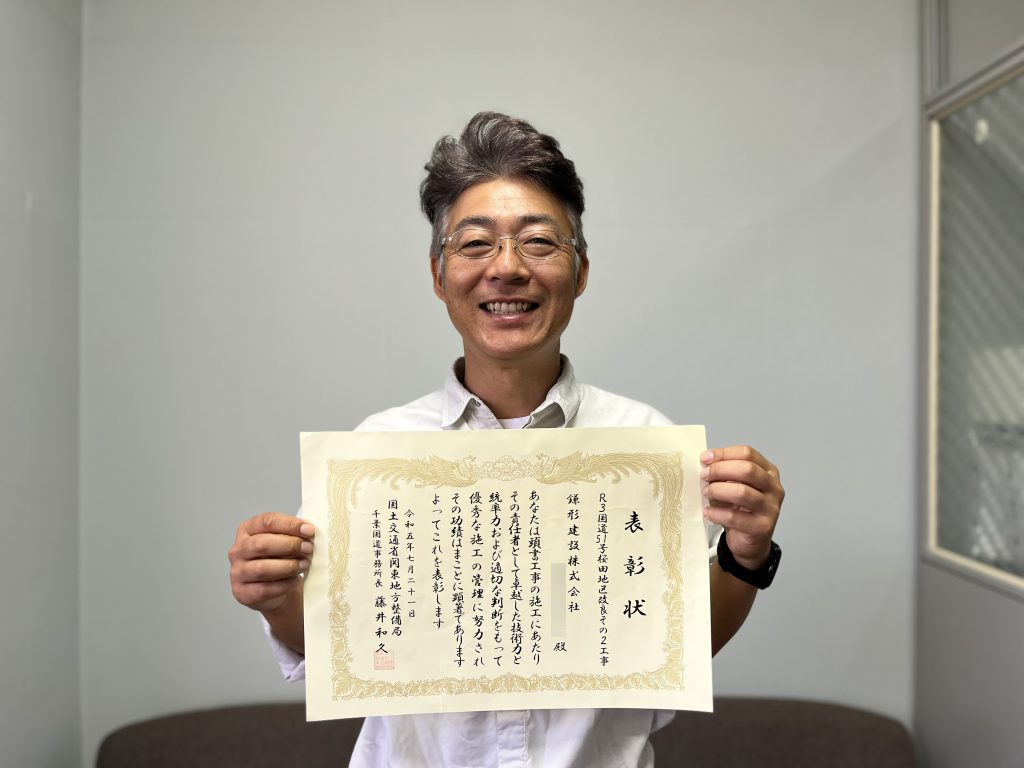 表彰状
R3国道51号桜田地区改良その2工事
鎌形建設株式会社
殿
あなたは頭書工事の施工にあたり
その責任者として卓越した技術力と
統率力および適切な判断をもって
優秀な施工の管理に努力され
その功績はまことに顕著であります
よってこれを表彰します
令和五年七月二十一日
国土交通省関東地方整備局
千葉国道事務所長 藤井和久